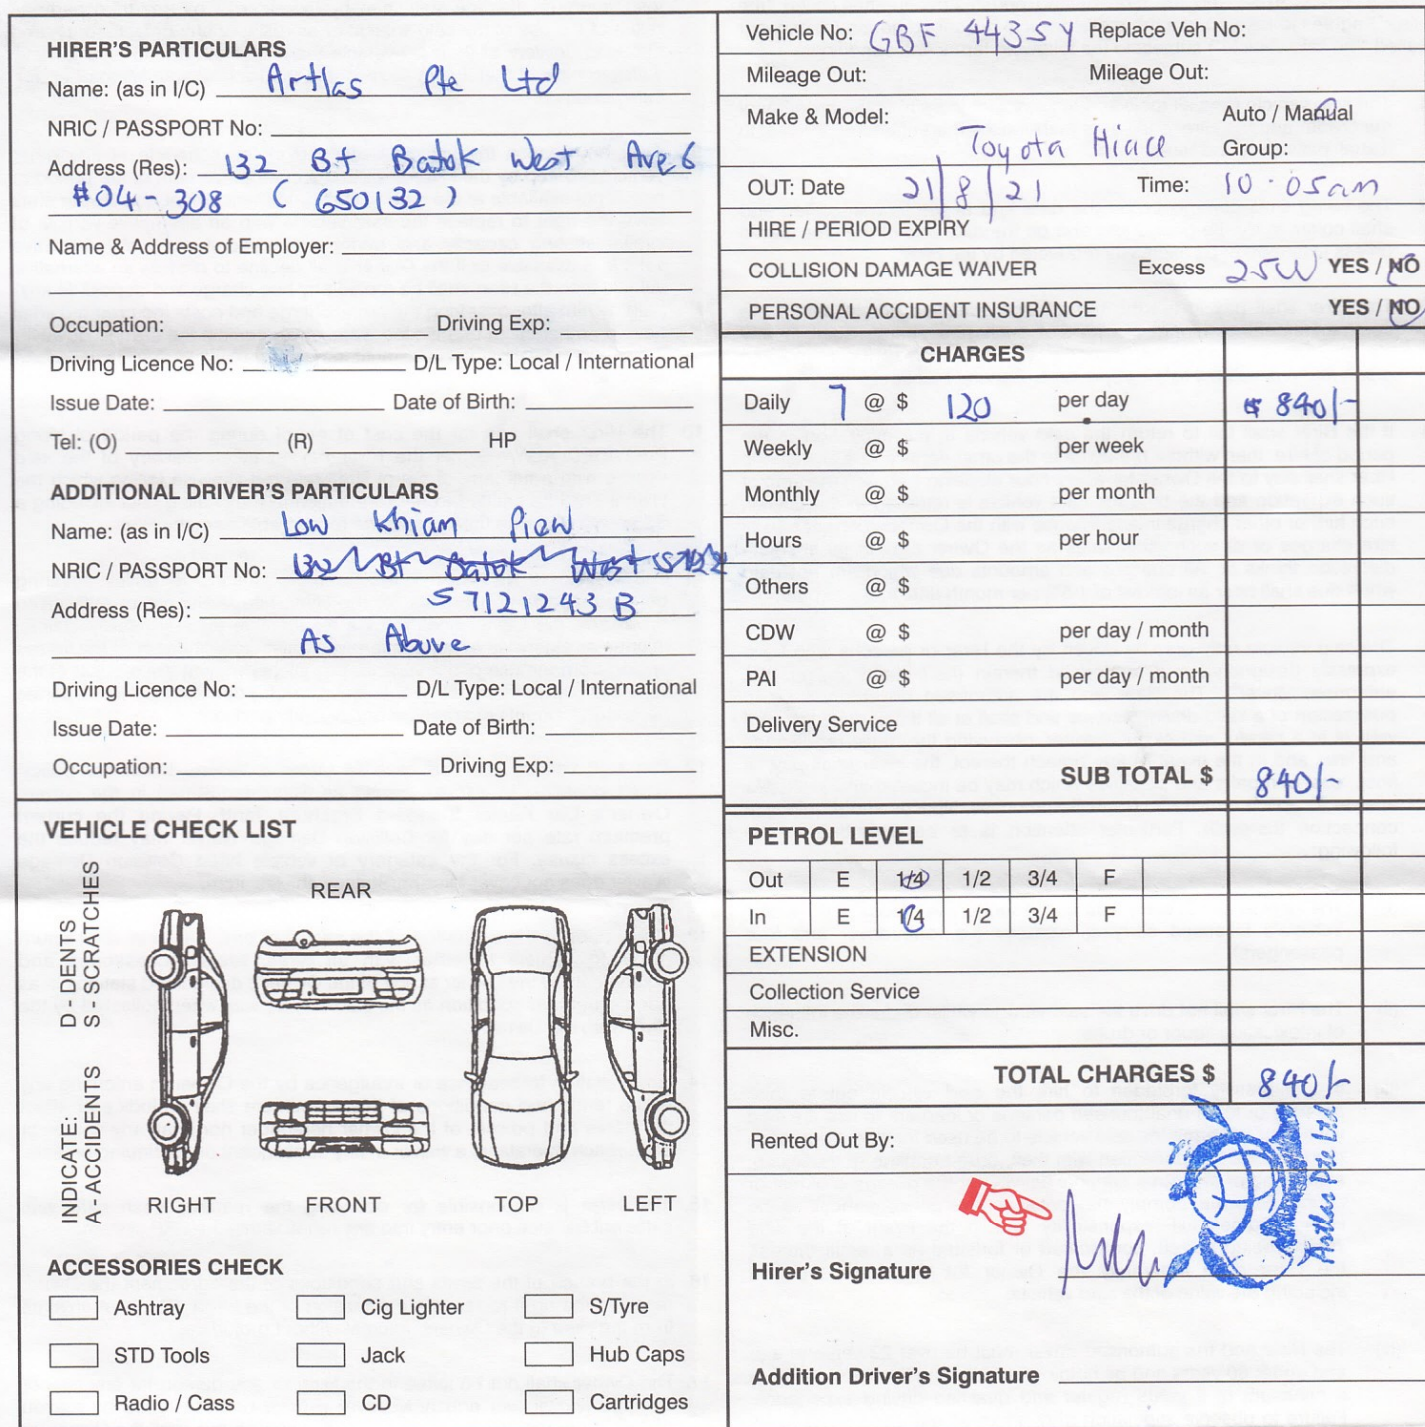 HIRER'S PARTICULARS
Name: (as in I/C) Artlas Pte Ltd
NRIC / PASSPORT No:
Address (Res): 132 Bt Batok West Ave 6
#04-308 (650132)
Name & Address of Employer:
Occupation: Driving Exp:
Driving Licence No: D/L Type: Local / International
Issue Date: Date of Birth:
Tel: (O) (R) HP
ADDITIONAL DRIVER'S PARTICULARS
Name: (as in I/C) Low Khiam Piew
NRIC / PASSPORT No: 132 Bt Batok West
S7121243B
Address (Res):
As Above
Driving Licence No: D/L Type: Local / International
Issue Date: Date of Birth:
Occupation: Driving Exp:
VEHICLE CHECK LIST
INDICATE: D - DENTS
A - ACCIDENTS S - SCRATCHES
REAR
RIGHT FRONT TOP LEFT
ACCESSORIES CHECK
Ashtray Cig Lighter S/Tyre
STD Tools Jack Hub Caps
Radio / Cass CD Cartridges
Vehicle No: GBF 4435Y Replace Veh No:
Mileage Out: Mileage Out:
Make & Model: Auto / Manual
Toyota Hiace Group:
OUT: Date 21/8/21 Time: 10.05am
HIRE / PERIOD EXPIRY
COLLISION DAMAGE WAIVER Excess YES / NO
PERSONAL ACCIDENT INSURANCE YES / NO
CHARGES
Daily 7 @ $ 120 per day $ 840/-
Weekly @ $ per week
Monthly @ $ per month
Hours @ $ per hour
Others @ $
CDW @ $ per day / month
PAI @ $ per day / month
Delivery Service
SUB TOTAL $ 840/-
PETROL LEVEL
Out E 1/4 1/2 3/4 F
In E 1/4 1/2 3/4 F
EXTENSION
Collection Service
Misc.
TOTAL CHARGES $ 840/-
Rented Out By:
Artlas Pte Ltd
Hirer's Signature
Addition Driver's Signature